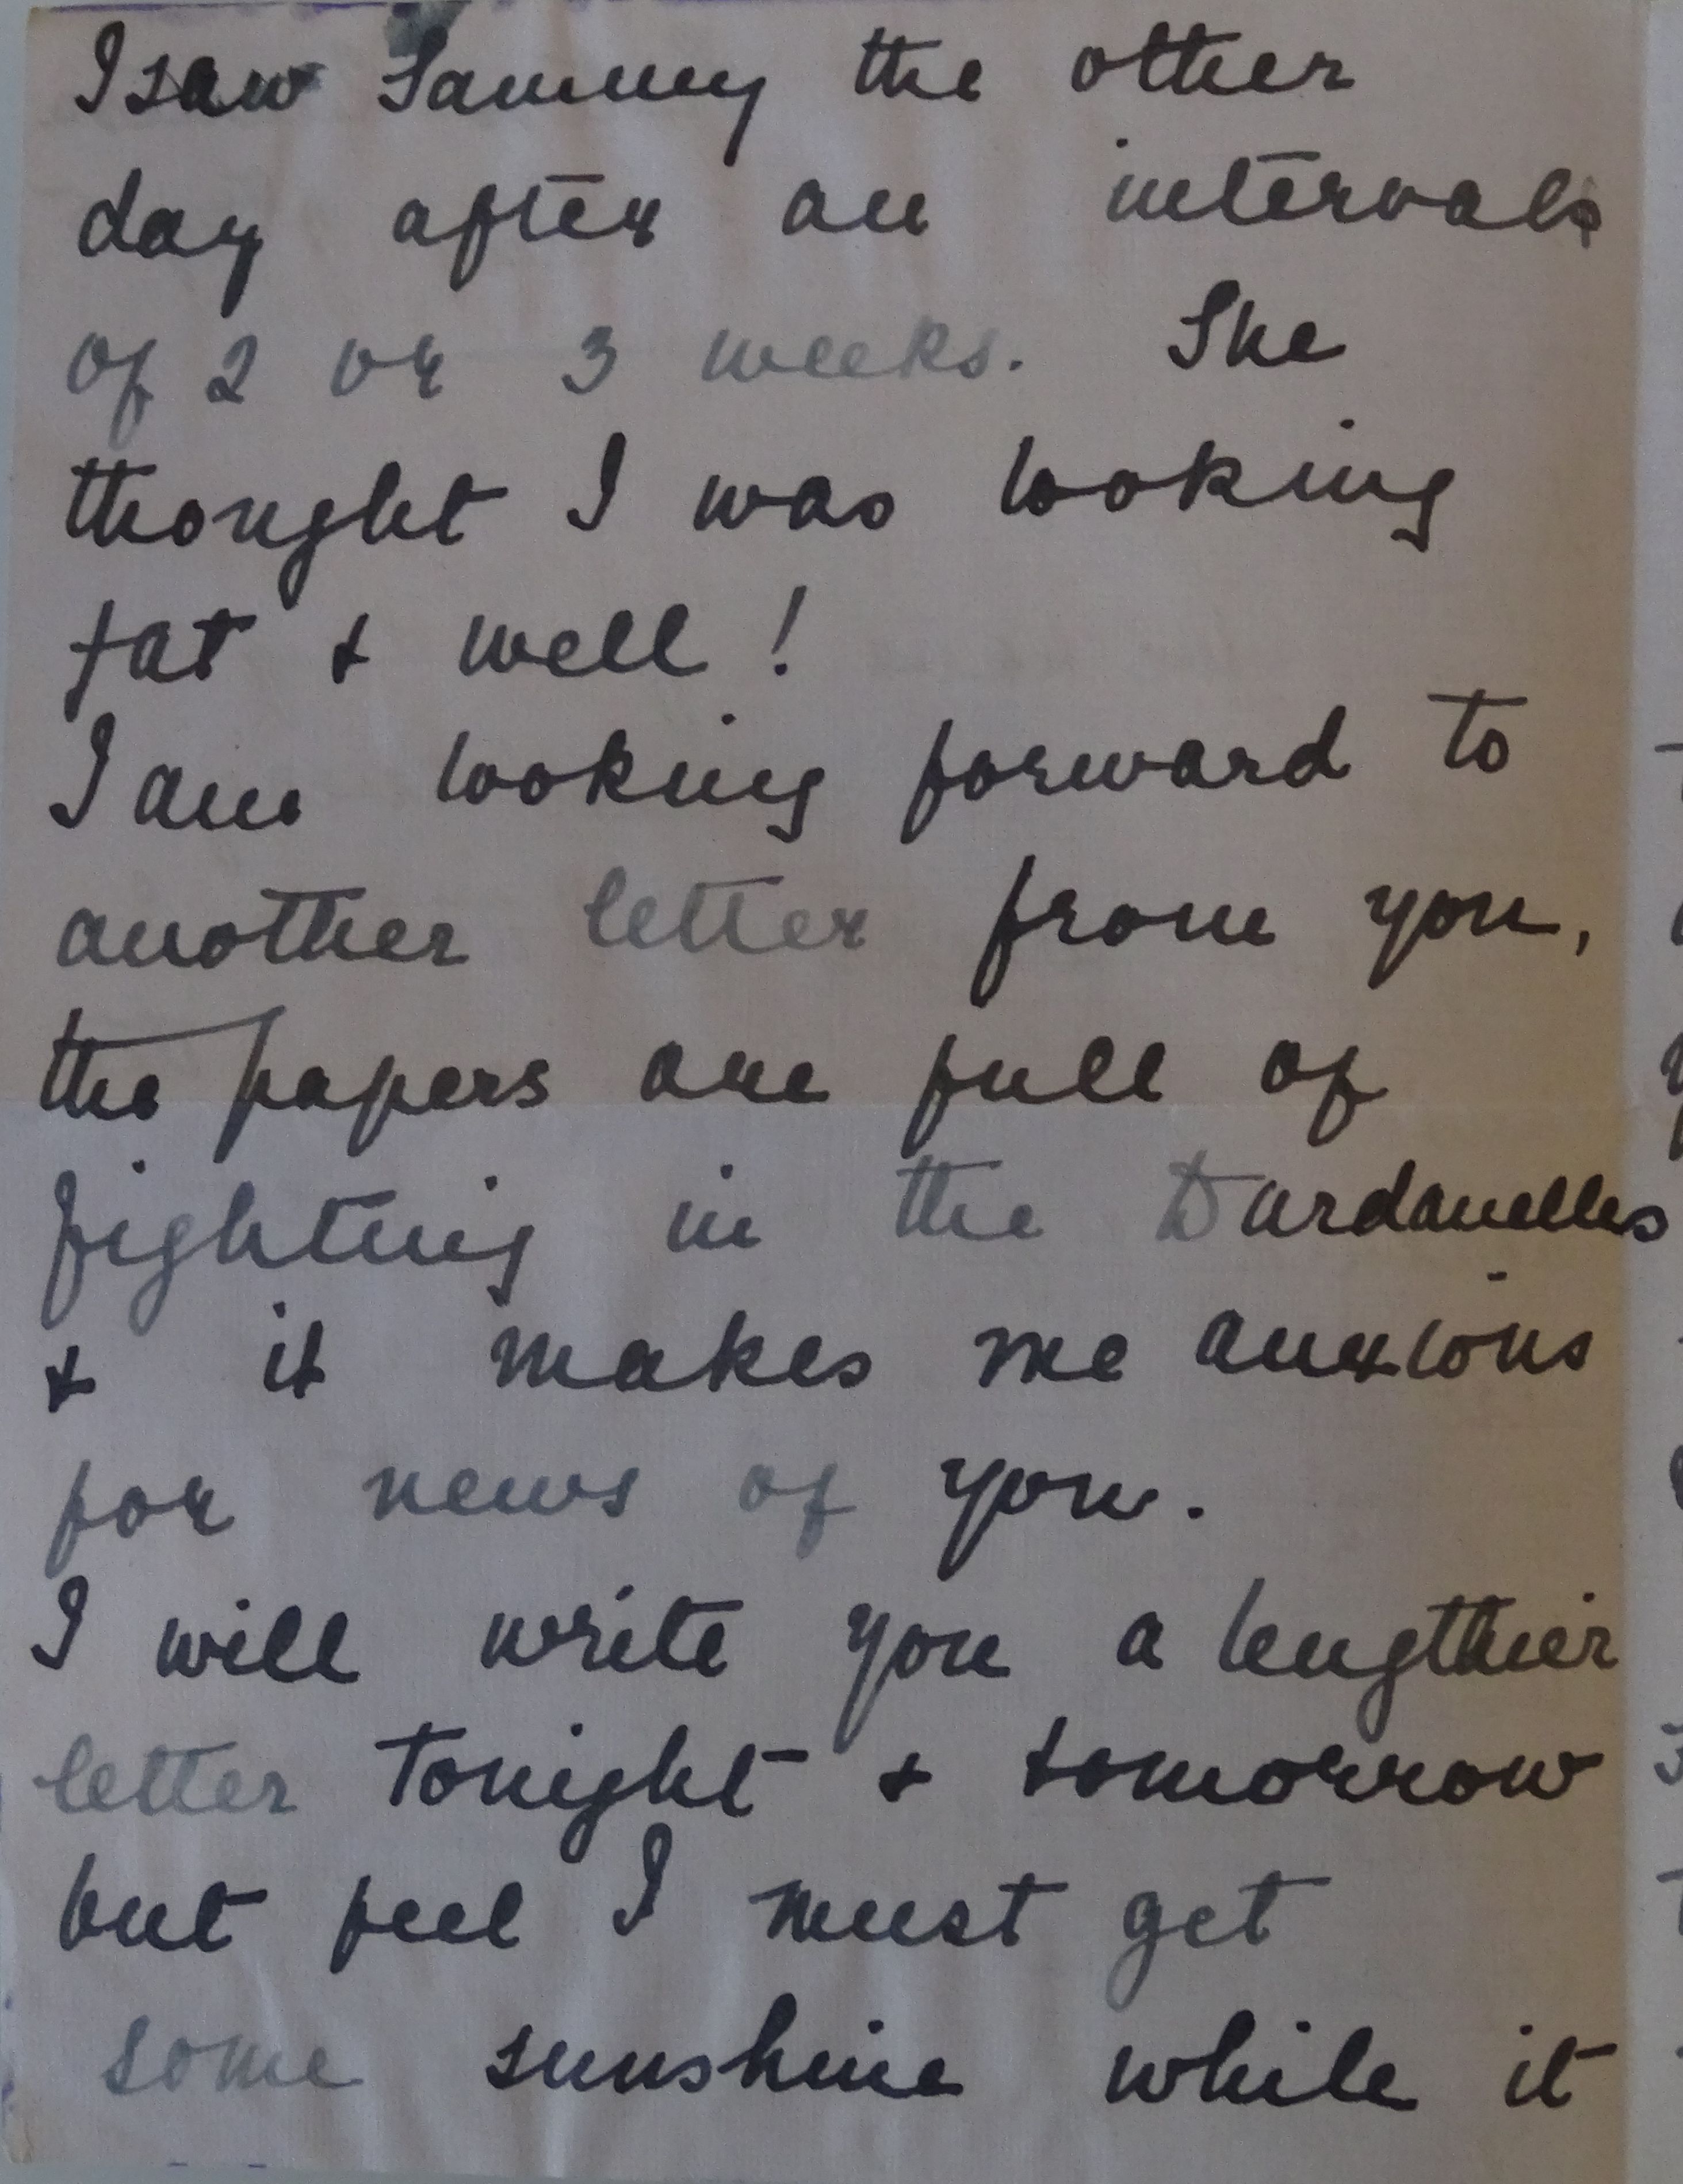 I saw Sammy the other
day after an interval
of 2 or 3 weeks. She
thought I was looking
fat & well!
I am looking forward to
another letter from you,
the papers are full of
fighting in the Dardanelles
& it makes me anxious
for news of you.
I will write you a lengthier
letter tonight & tomorrow
but feel I must get
some sunshine while it